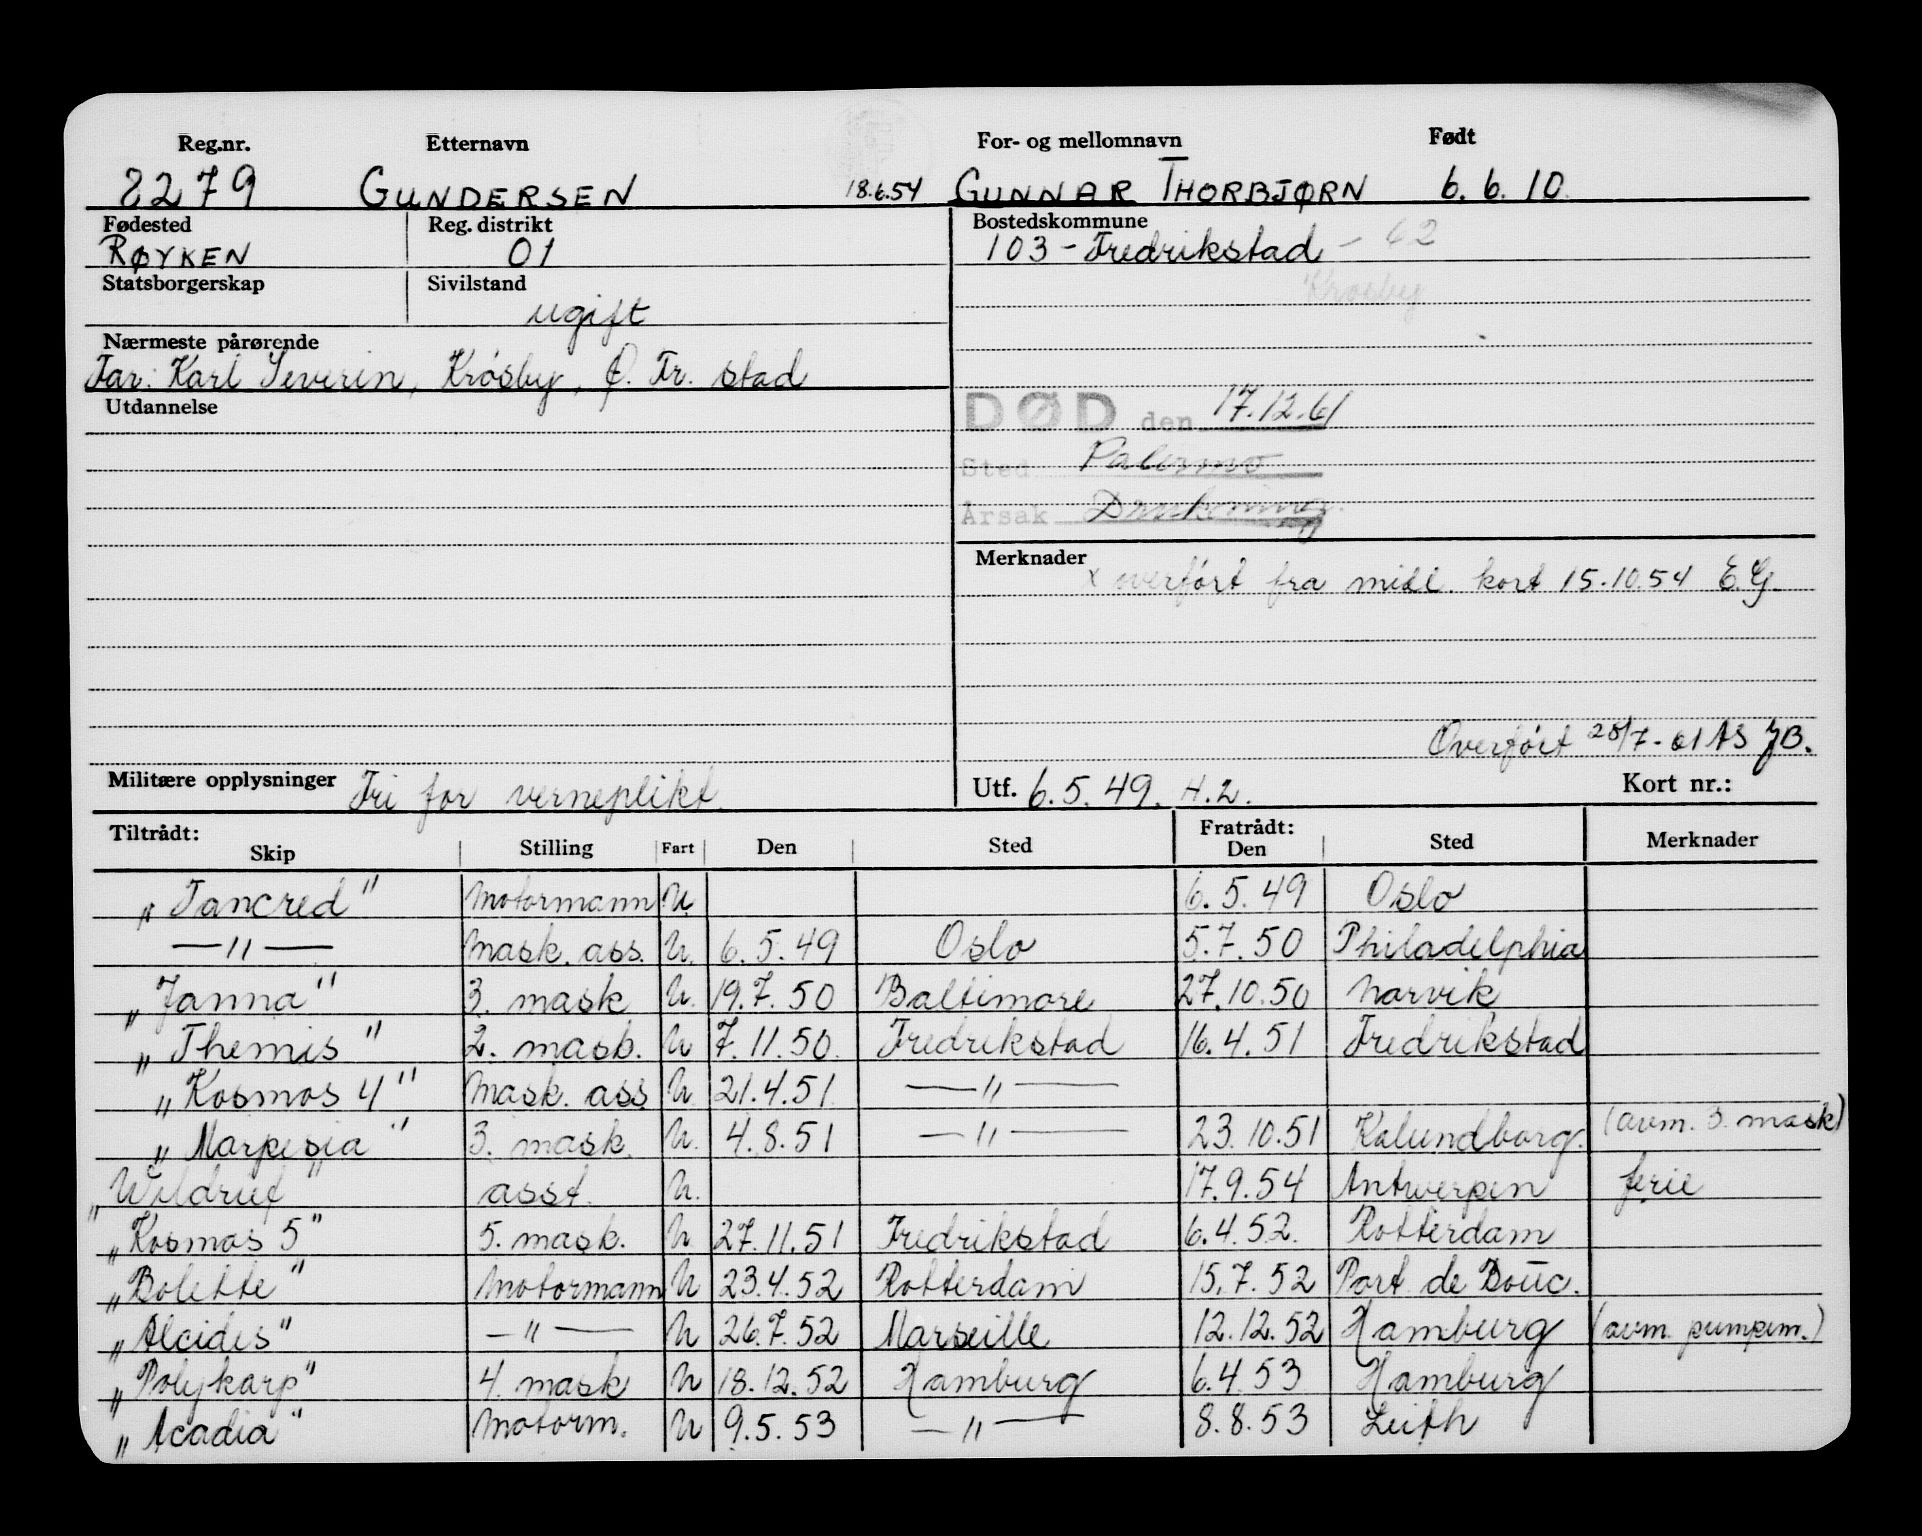 Reg.nr. Etternavn For- og mellomnavn Født
2279 GUNDERSEN 18.6.54 GUNNAR THORBJØRN 6.6.10.
Fødested Reg. distrikt Bostedskommune
RØYKEN 01 103 - Fredrikstad - 62
Statsborgerskap Sivilstand Krosby
ugift
Nærmeste pårørende
Far: Karl Severin, Krósby, Ø. Fr. stad
Utdannelse
DØD den 17.12.61
Sted Palermo
Årsak Drukning
Merknader
x overført fra midl. kort 15.10.54 E.G.
Overført 28/7-61 AS JB.
Militære opplysninger Fri for verneplikt Utf. 6.5.49. H.2. Kort nr.:
Tiltrådt: Fratrådt:
Skip Stilling Fart Den Sted Den Sted Merknader
„Tancred" Motormann U. 6.5.49 Oslo
—"— Mask. ass. U. 6.5.49 Oslo 5.7.50 Philadelphia
„Janna" 3. mask U. 19.7.50 Baltimore 27.10.50 Narvik
„Themis" 2. mask. U 7.11.50. Fredrikstad 16.4.51 Fredrikstad
„Kosmos 4" Mask. ass U. 21.4.51 —"—
„Marpesia" 3. mask. U. 4.8.51 —"— 23.10.51 Kalundborg. (avm. 3. mask)
„Wildrut" asst. U. 17.9.54 Antwerpen ferie
„Kosmos 5" 5. mask. U 27.11.51 Fredrikstad 6.4.52. Rotterdam
„Bolette" Motormann U 23.4.52 Rotterdam 15.7.52 Port de Bouc.
„Alcides" —"— U 26.7.52 Marseille 12.12.52 Hamburg (avm. pumpem.)
„Polykarp" 4. mask U 18.12.52 Hamburg 6.4.53 Hamburg
„Acadia" Motorm. U 9.5.53 —"— 8.8.53 Leith